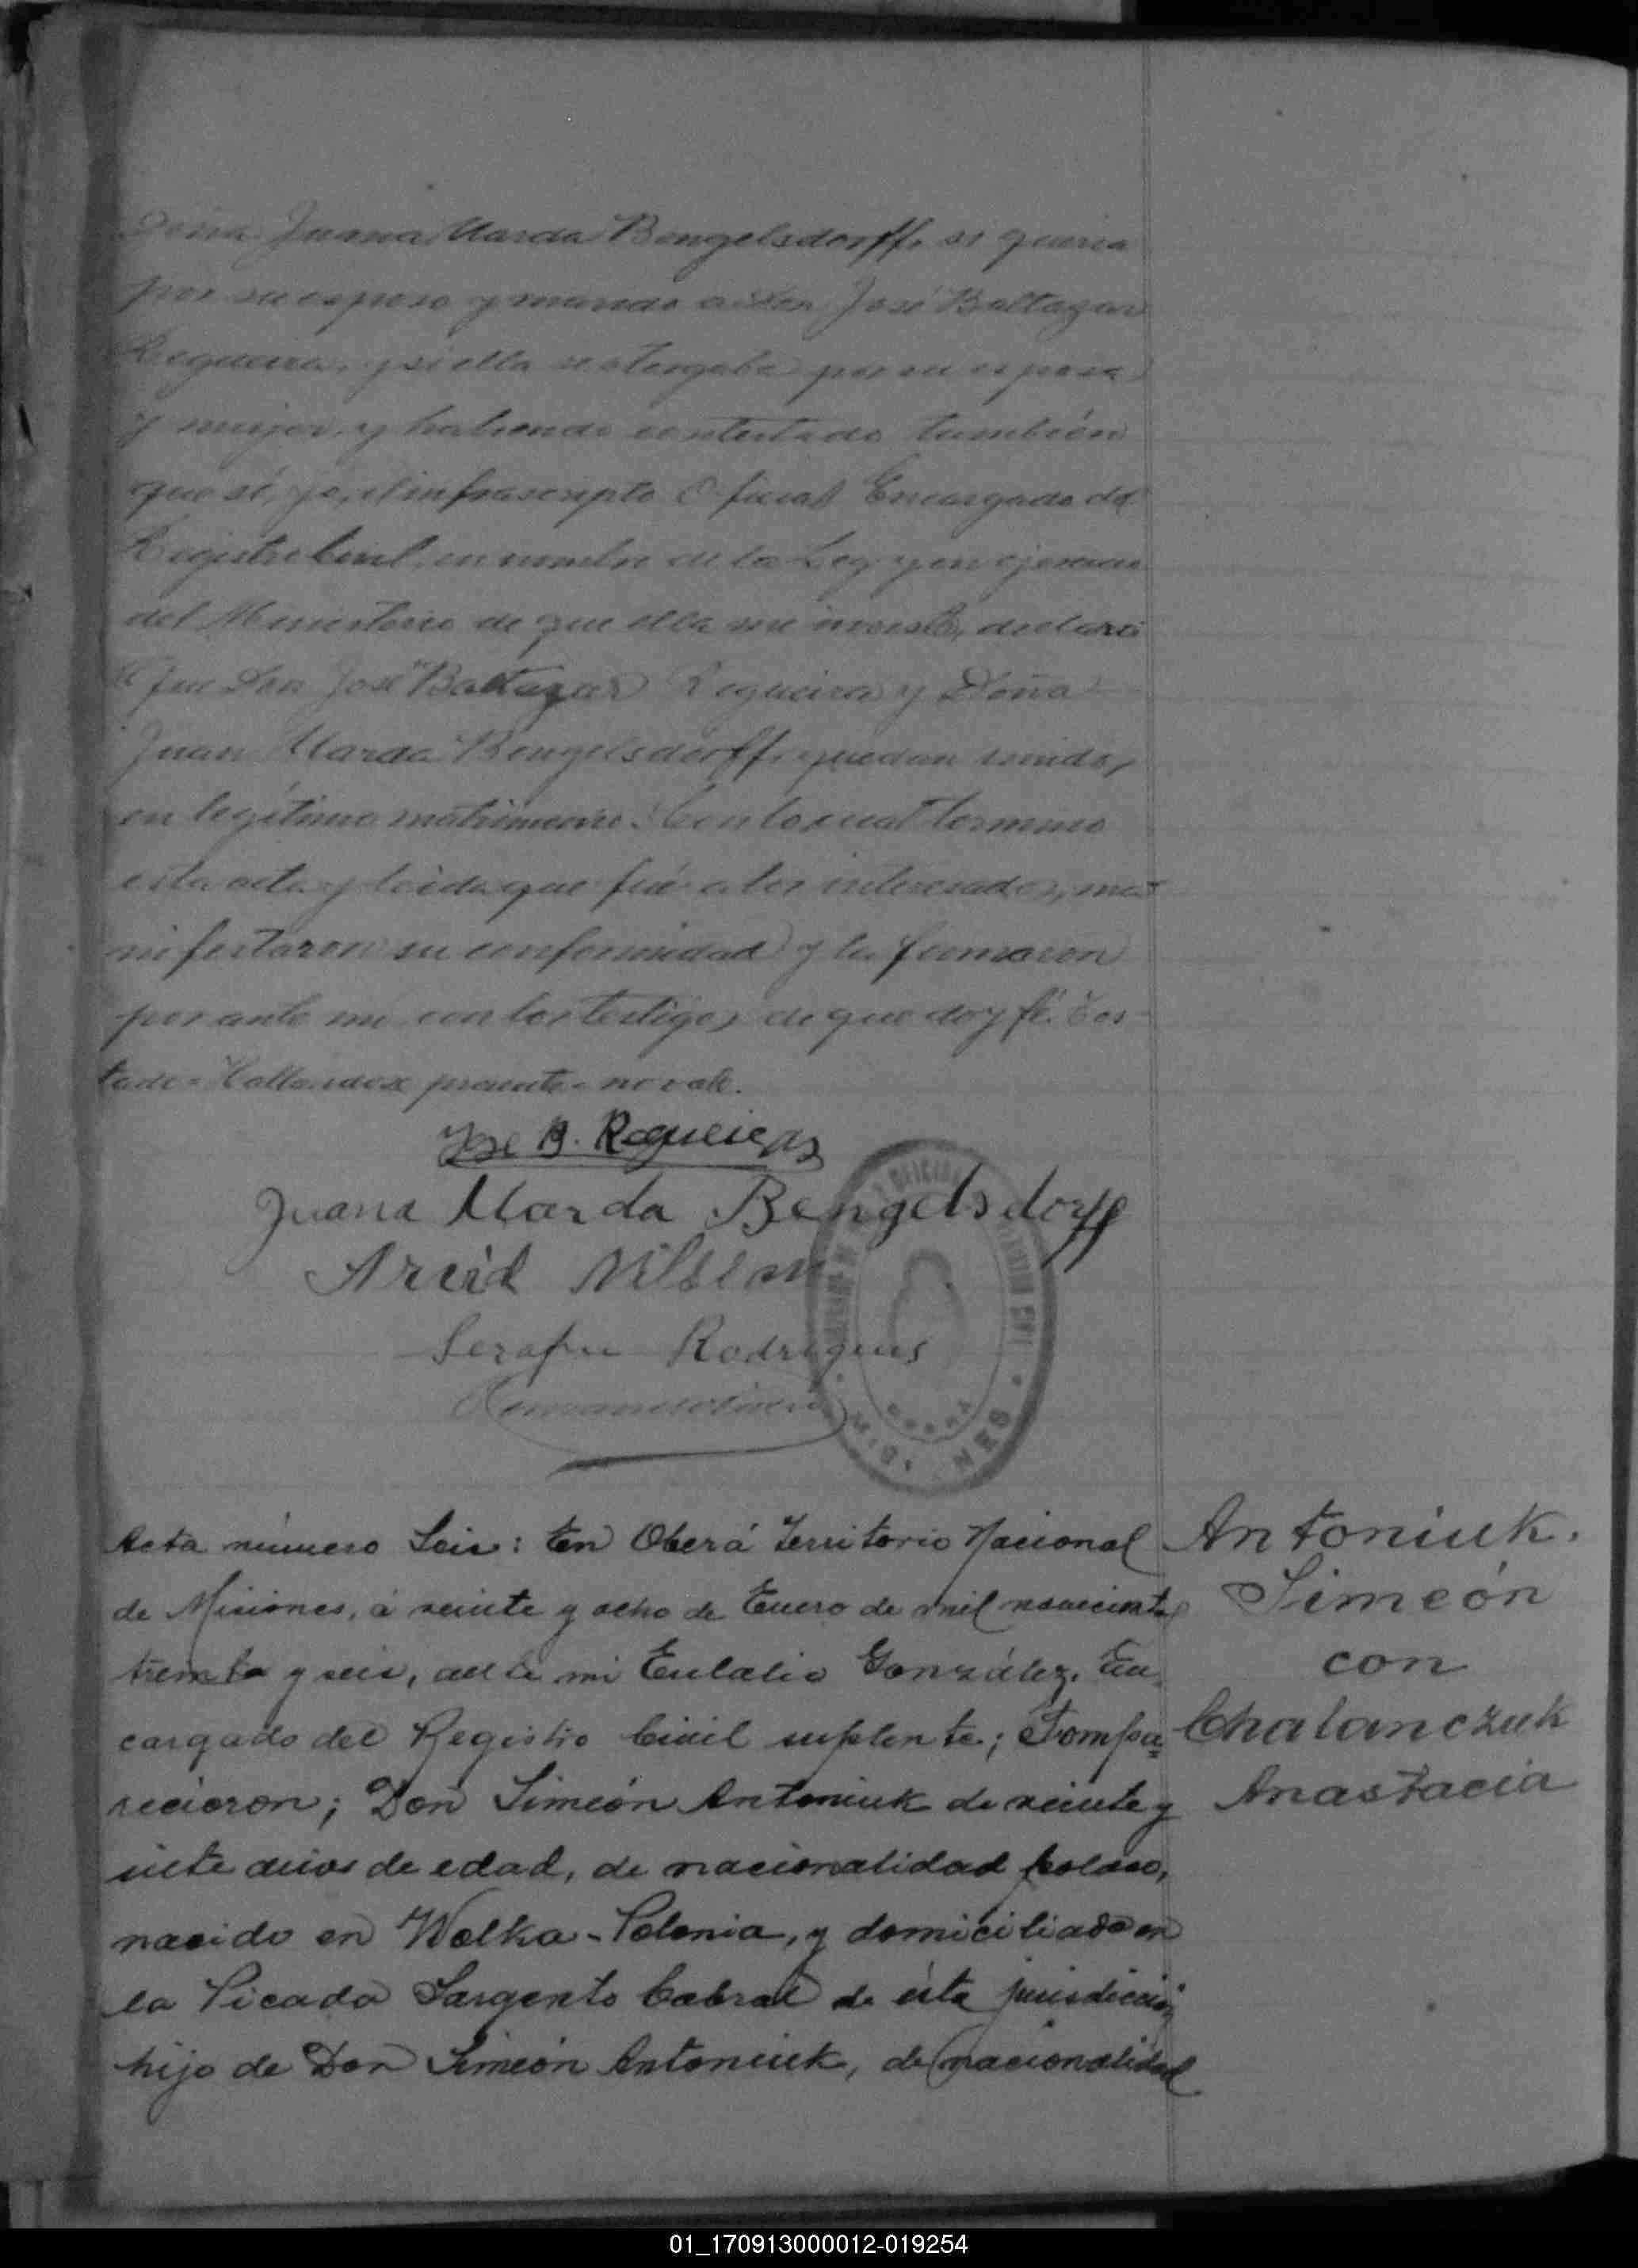 Doña Juana Uarda Bengelsdorff, si queria
por su esposo y marido a Don José Baltazar
Regueira, y si ella se otorgaba por su esposa
y mujer, y habiendo contestado también
que sí, yo, el infrascripto Oficial Encargado del
Registro Civil, en nombre de la Ley y en ejercicio
del Ministerio de que ella me inviste, declaro
que Don José Baltazar Regueira y Doña
Juan Uarda Bengelsdorff, quedan unidos
en legítimo matrimonio. Con lo cual termino
esta acta y leida que fué a los interesados, ma-
nifestaron su conformidad y la firmaron
por ante mi con los testigos de que doy fé. Tes-
tado= presente= no vale.
José B. Regueira
Juana Uarda Bengelsdorff
Arvid Nilsson
Serafin Rodrigues
Acta número Seis: En Oberá Territorio Nacional
de Misiones, á veinte y ocho de Enero de mil novecientos
treinta y seis, ante mi Eulalio González, En
cargado del Registro Civil suplente; Compa=
recieron; Don Simeón Antoniuk de veinte y
siete años de edad, de nacionalidad polaco,
nacido en Wolka-Polonia, y domiciliado en
la Picada Sargento Cabral de ésta jurisdicción
hijo de Don Simeón Antoniuk, de nacionalidad
Antoniuk.
Simeón
con
Chalanczuk
Anastacia
01_170913000012-019254